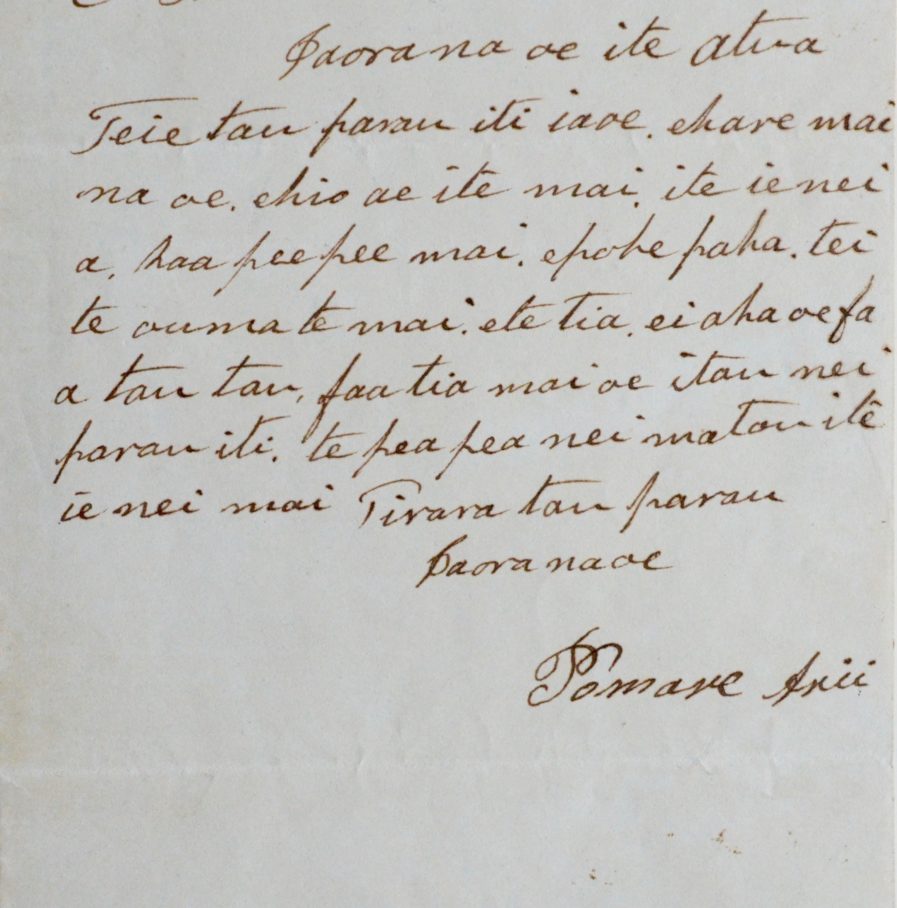 Iaorana oe ite Atua
Teie tau parau iti iaoe. ehare mai
na oe. ehio ae ite mai. ite ie nei
a, haa peepee mai. epohe paha. tei
te ouma te mai. ete tia. eiaha oe fa
a tau tau, faatia mai oe itau nei
parau iti. te peapea nei matou ite
ie nei mai Tirara tau parau
Iaorana oe
Pomare Arii